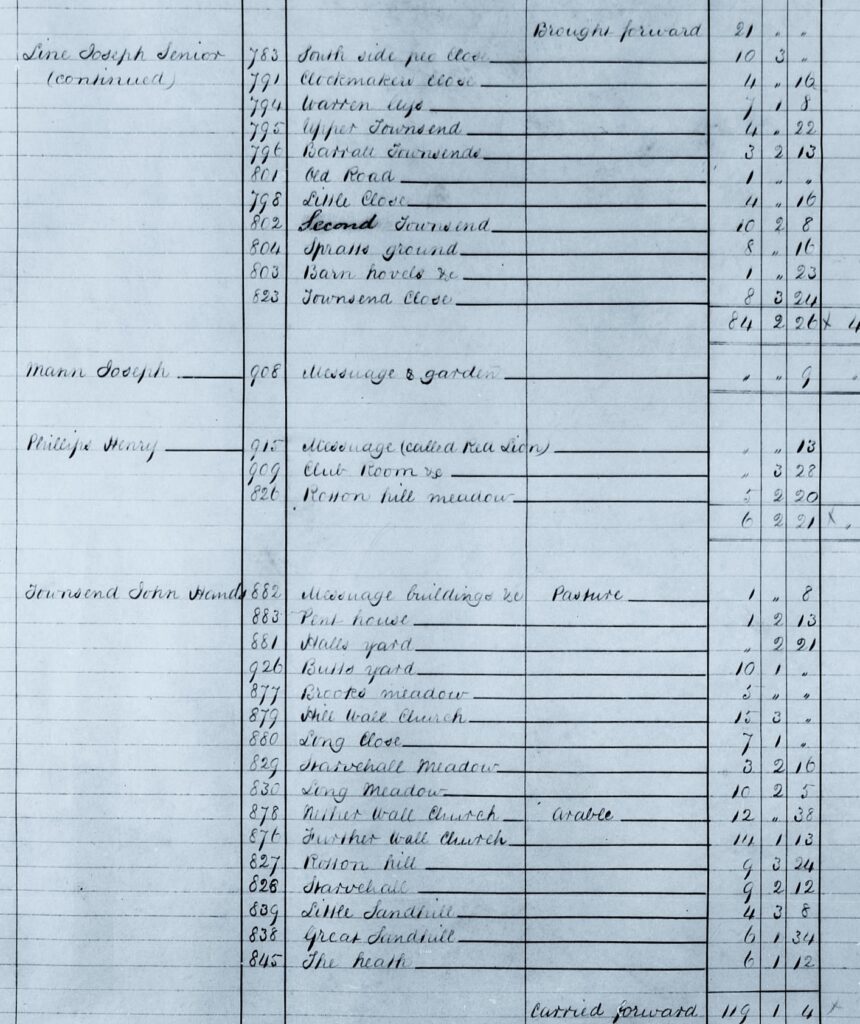 Brought forward 21 „ „
Line Joseph Senior 783 South side pec Close 10 3 „
(continued) 791 Clockmakers Close 4 „ 16
794 Warren Leys 7 1 8
795 Upper Townsend 4 „ 22
796 Barratt Townsends 3 2 13
801 Old Road 1 „ „
798 Little Close 4 „ 16
802 Second Townsend 10 2 8
804 Spratts ground 8 „ 16
803 Barn hovels &c 1 „ 23
823 Townsend Close 8 3 24
84 2 26 x 4
Mann Joseph 908 Messuage & garden „ „ 9 „
Phillips Henry 915 Messuage (called Red Lion) „ „ 13
909 Club Room &c „ 3 28
826 Rosson hill meadow 5 2 20
6 2 21 x „
Townsend John Hands 882 Messuage buildings &c Pasture 1 „ 8
883 Pent house 1 2 13
881 Halls yard „ 2 21
926 Butts yard 10 1 „
877 Brooks meadow 5 „ „
879 Hill Wall Church 15 3 „
880 Long Close 7 1 „
829 Starvehall Meadow 3 2 16
830 Long Meadow 10 2 5
878 Nether Wall Church Arable 12 „ 38
876 Further Wall Church 14 1 13
827 Rosson hill 9 3 24
828 Starvehall 9 2 12
839 Little Sandhill 4 3 8
838 Great Sandhill 6 1 34
845 The heath 6 1 12
Carried forward 119 1 4 x